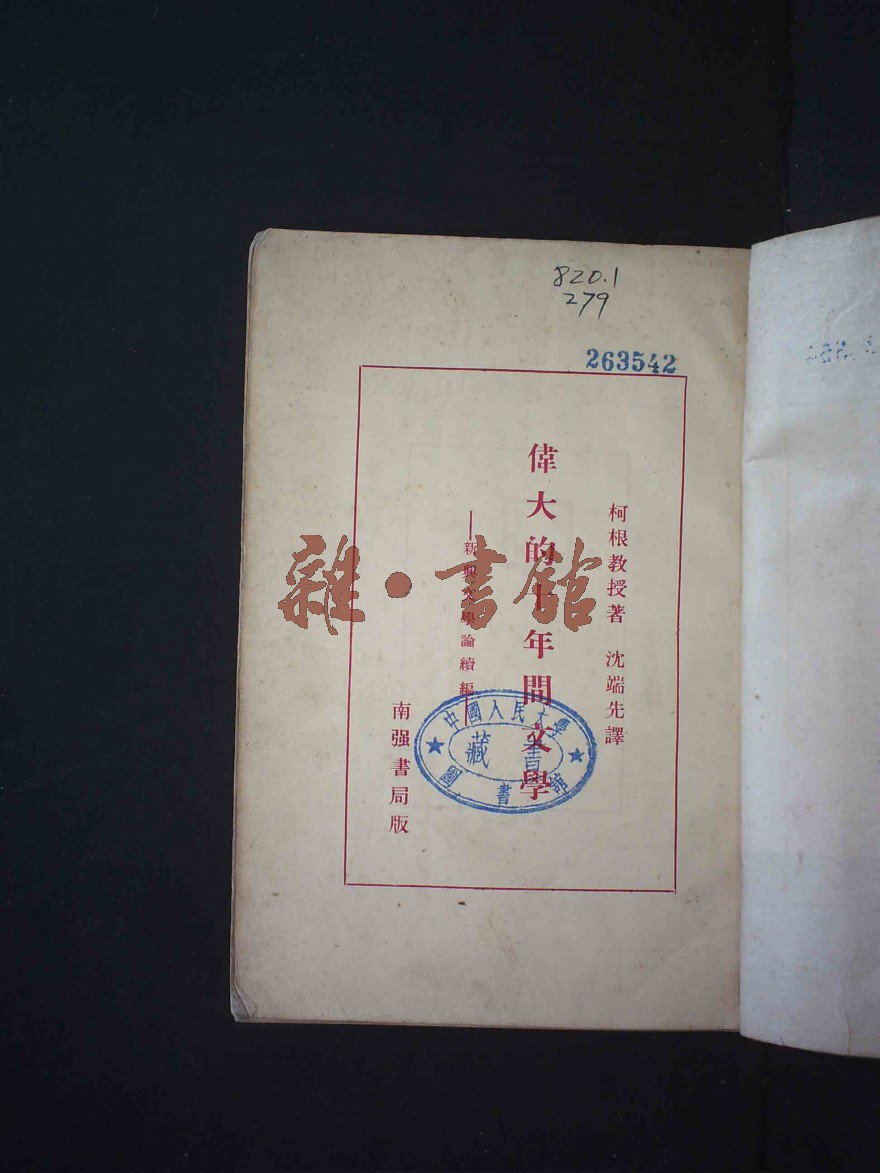 820.1
279
263542
柯根教授著 沈端先譯
偉大的十年間文學
—新興文學論續編—
南强書局版
中國人民大學
圖書館
藏書
雜·書館